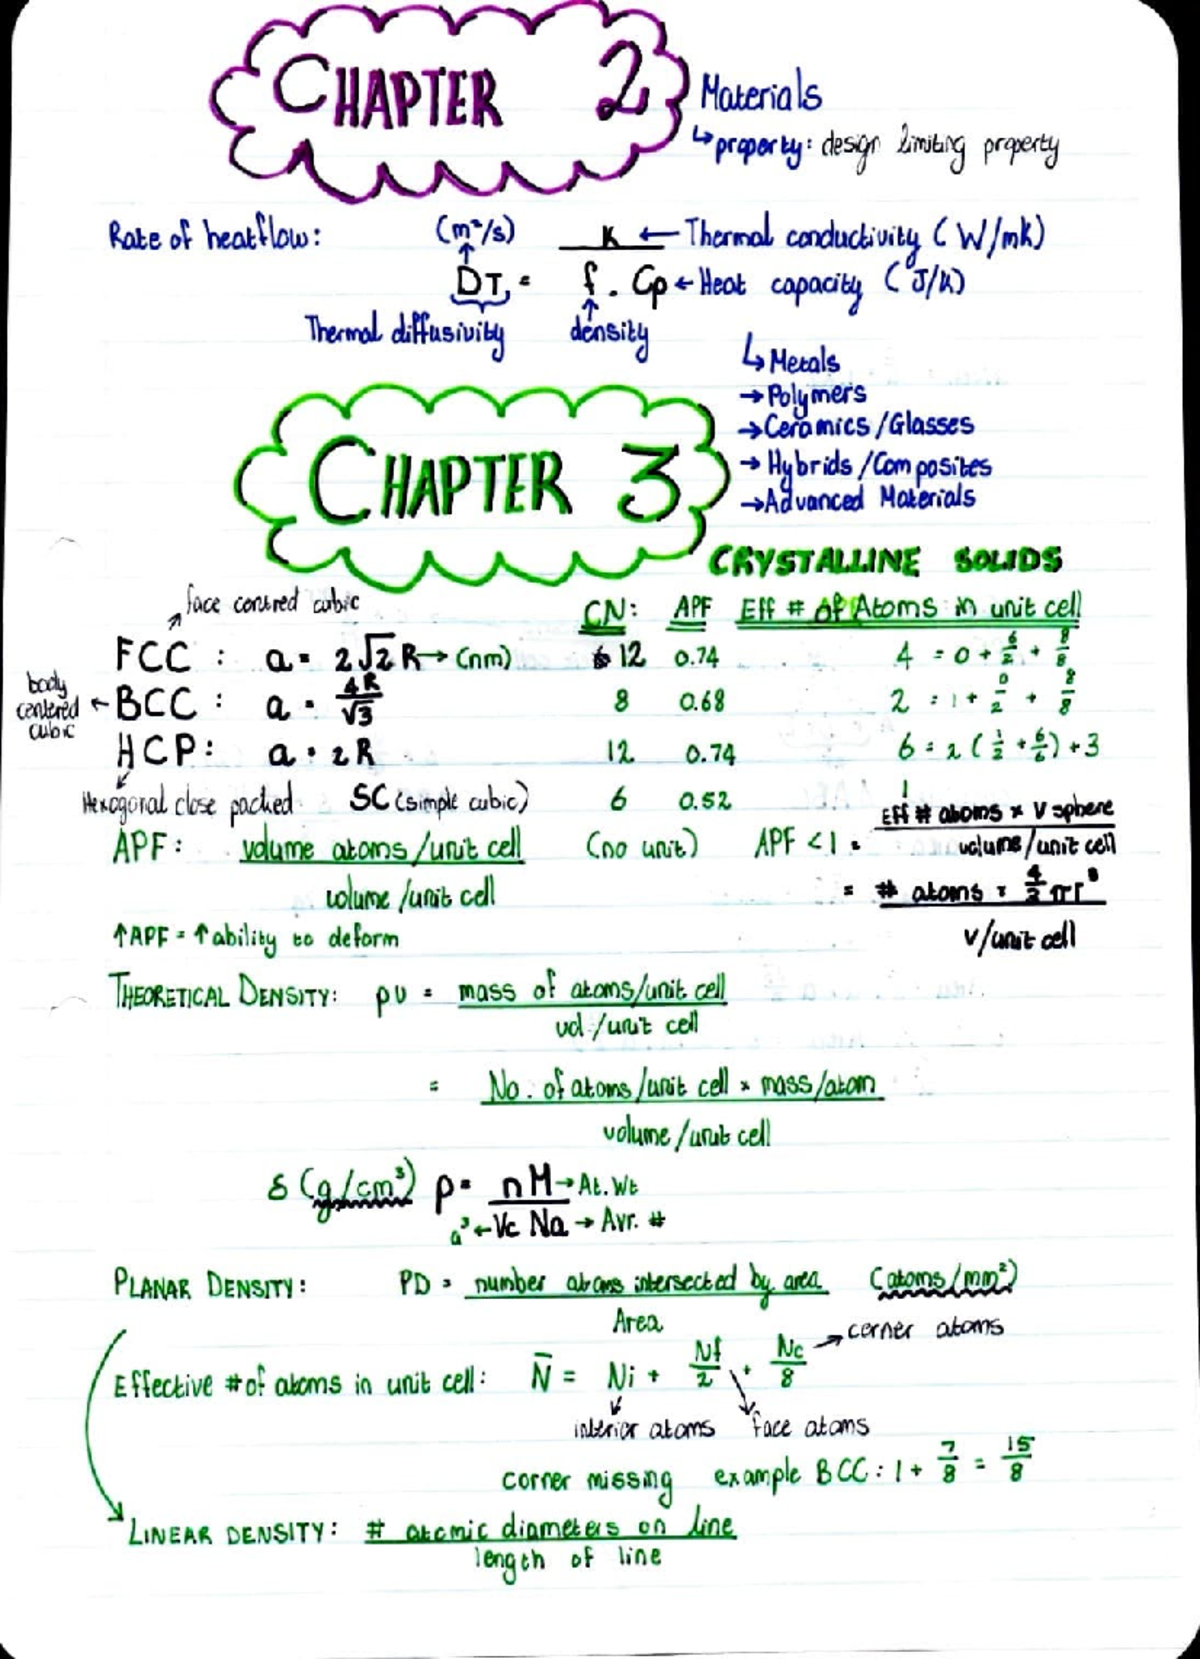 CHAPTER 2 Materials
↳ property: design limiting property
Rate of heatflow: (m²/s) K ← Thermal conductivity (W/mk)
DT = f . Cp ← Heat capacity (J/K)
Thermal diffusivity density
↳ Metals
→ Polymers
→ Ceramics/Glasses
CHAPTER 3 → Hybrids/Composites
→ Advanced Materials
CRYSTALLINE SOLIDS
face centred cubic CN: APF Eff # of Atoms in unit cell
FCC : a = 2√2 R → (nm) 12 0.74 4 = 0 + 6/2 + 8/8
body centered cubic ← BCC : a = 4R/√3 8 0.68 2 = 1 + 0/2 + 8/8
HCP : a = 2R 12 0.74 6 = 2(1/2 + 6/6) + 3
Hexagonal close packed SC (simple cubic) 6 0.52 1
APF: volume atoms/unit cell (no unit) APF < 1 = Eff # atoms × V sphere
volume/unit cell volume/unit cell
= # atoms × 4/3 πr³
↑APF = ↑ability to deform V/unit cell
THEORETICAL DENSITY: ρυ = mass of atoms/unit cell
vol/unit cell
= No. of atoms/unit cell × mass/atom
volume/unit cell
δ (g/cm³) ρ = nM → At. Wt
a³ ← Vc Na → Avr. #
PLANAR DENSITY: PD = number atoms intersected by area (atoms/mm²)
Area
Effective # of atoms in unit cell: N̄ = Ni + Nf/2 + Nc/8 → corner atoms
interior atoms face atoms
corner missing example BCC: 1 + 7/8 = 15/8
LINEAR DENSITY: # atomic diameters on line
length of line